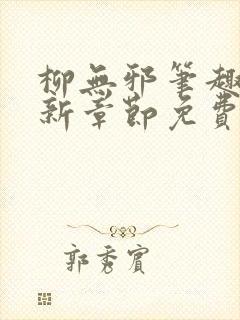 柳無邪筆趣
新章節免費
郭秀賓